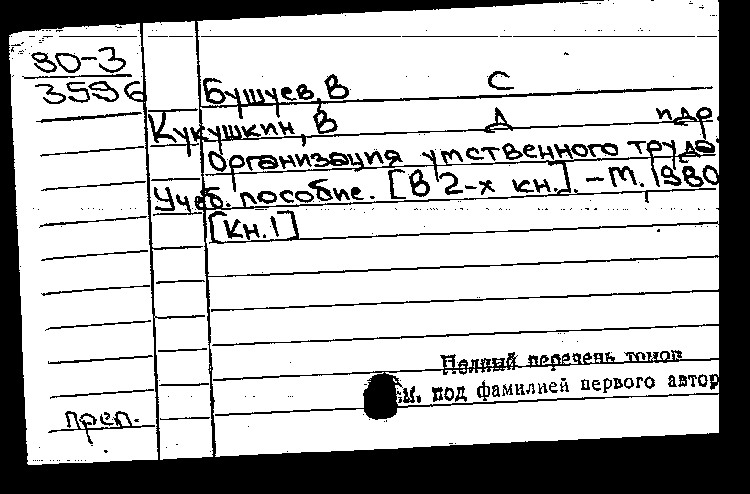 80-3
3596
Бушуев, В С
Кукушкин, В А и др.
Организация умственного труда
Учеб. пособие. [В 2-х кн.]. - М. 1980
[Кн. 1]
Полный перечень томов
см. под фамилией первого автор
преп.